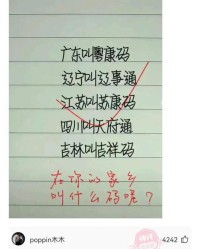 广东叫粤康码
辽宁叫辽事通
江苏叫苏康码
四川叫天府通
吉林叫吉祥码
在你的家乡
叫什么码呢？
poppin木木
4242